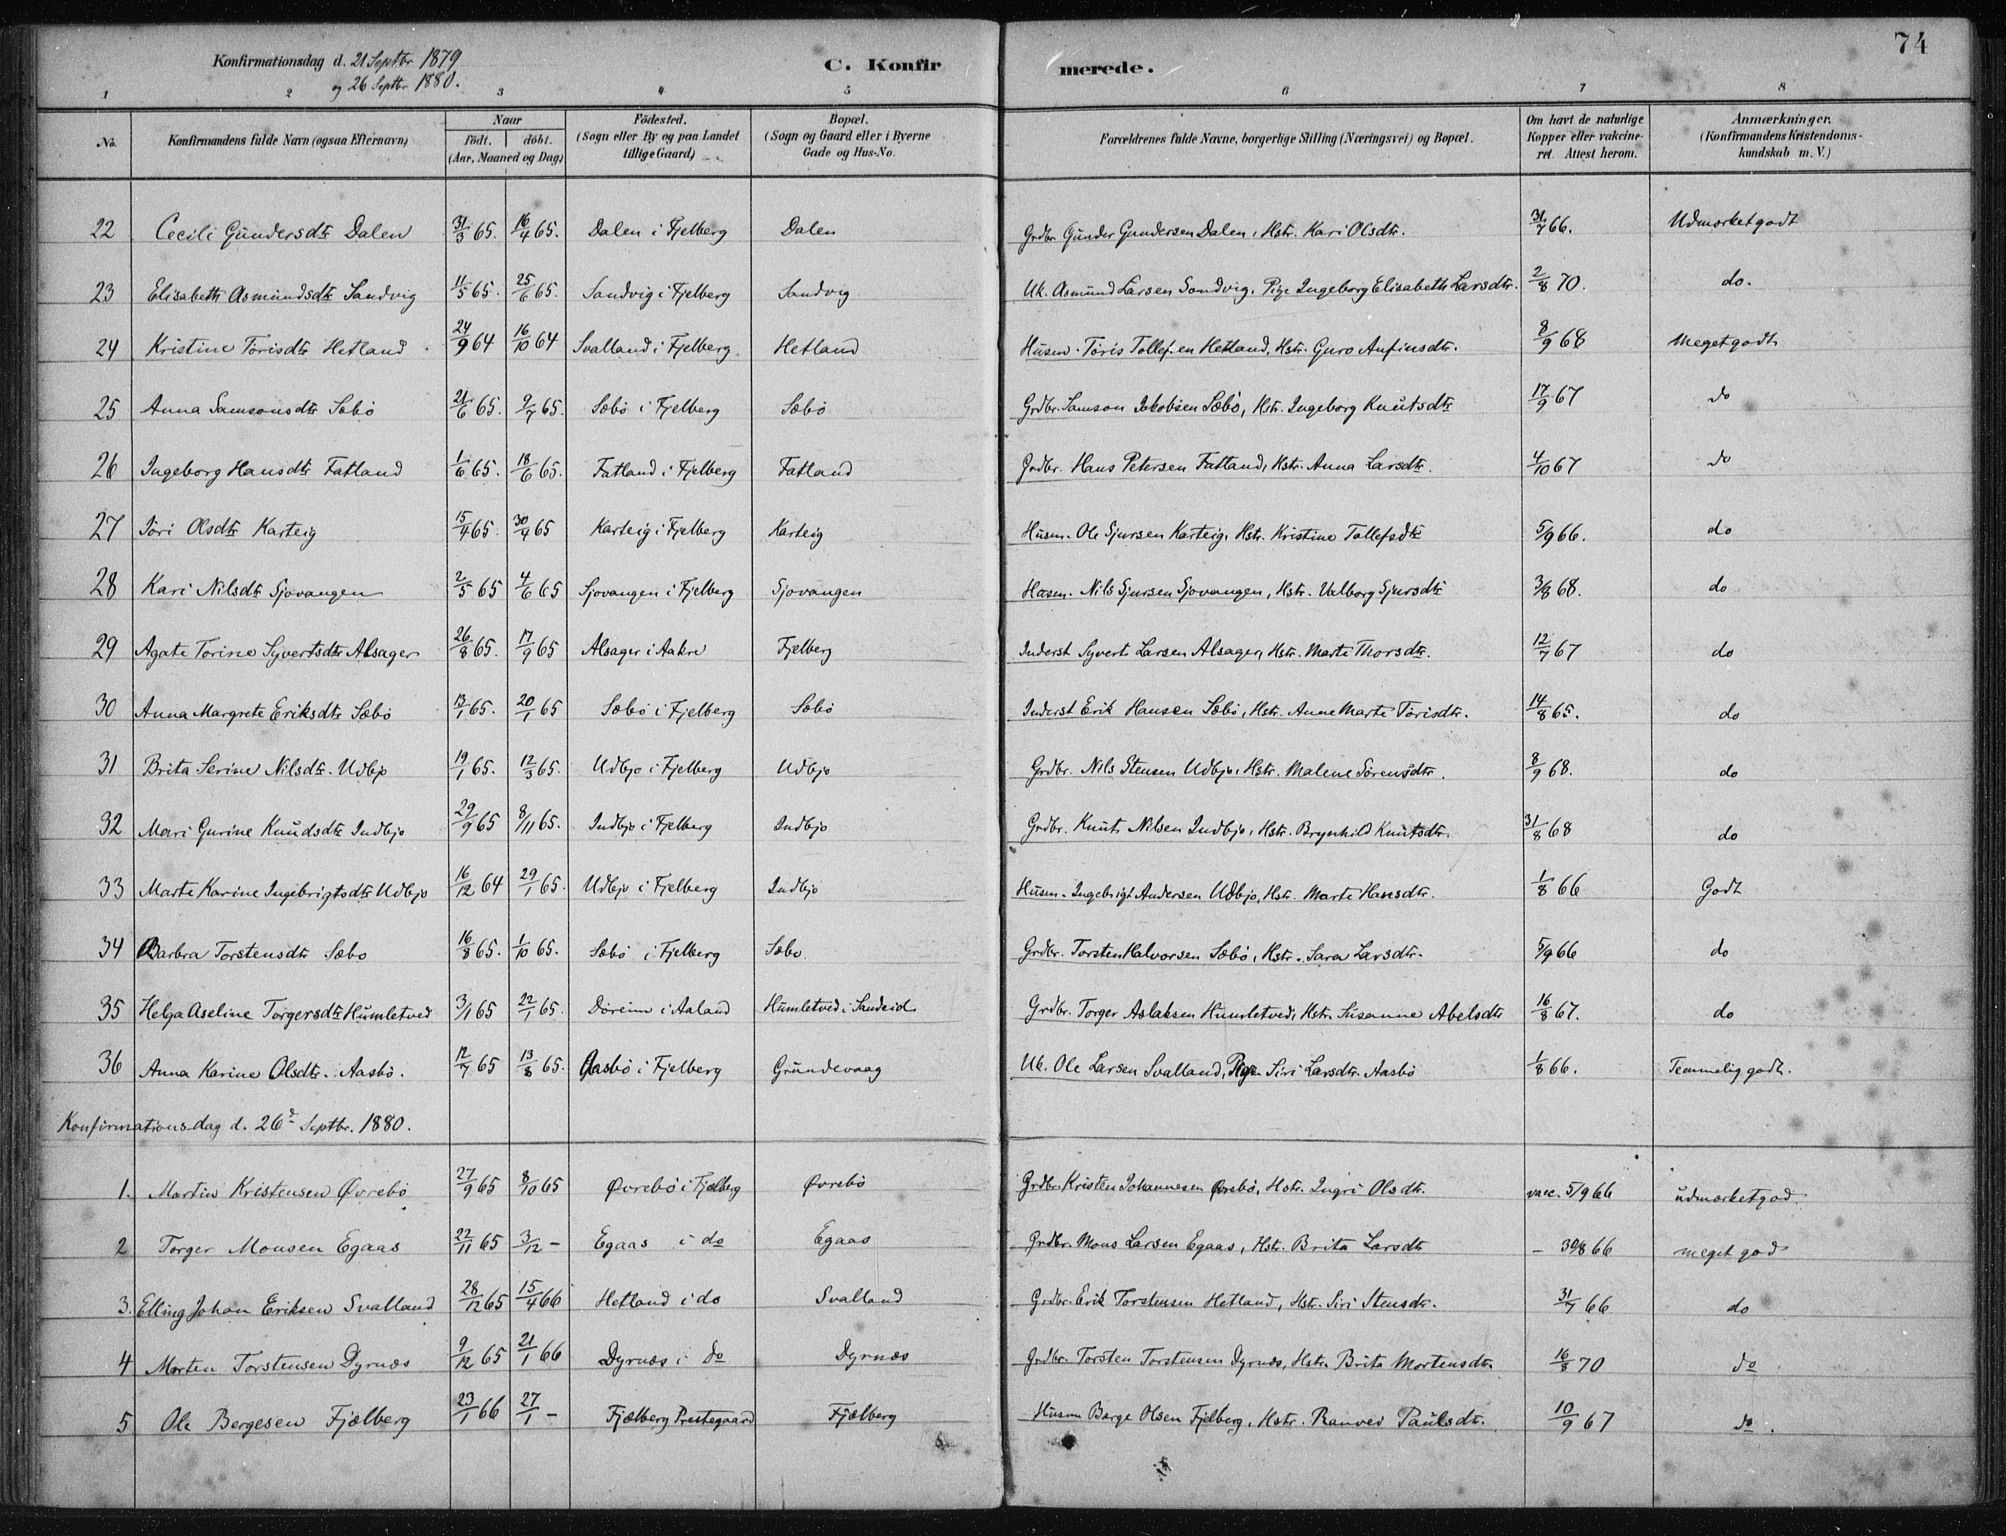 74
Konfirmationsdag d. 21 Septbr. 1879
og 26 Septbr. 1880.
C. Konfirmerede.
1 2 3 4 5 6 7 8
No. | Konfirmandens fulde Navn (ogsaa Efternavn) | Naar födt. döbt. (Aar, Maaned og Dag) | Födested. (Sogn eller By og paa Landet tillige Gaard) | Bopæl. (Sogn og Gaard eller i Byerne Gade og Hus-No. | Forældrenes fulde Navne, borgerlige Stilling (Næringsvei) og Bopæl. | Om havt de naturlige Kopper eller vakcineret. Attest herom. | Anmærkninger. (Konfirmandens Kristendomskundskab m. V.)
22 Cecili Gundersdtr Dalen 31/3 65. 16/4 65. Dalen i Fjelberg Dalen Grdbr. Gunder Gundersen Dalen, Hstr. Kari Olsdtr. 31/7 66. Udmærket godt
23 Elisabeth Asmundsdtr Sandvig 11/5 65. 25/6 65. Sandvig i Fjelberg Sandvig Uk. Asmund Larsen Sandvig, Pige Ingeborg Elisabeth Larsdtr. 2/8 70. do.
24 Kristine Torisdtr Hetland 24/9 64 16/10 64 Svalland i Fjelberg. Hetland Husm. Toris Tollefsen Hetland, Hstr. Guro Anfinsdtr. 8/9 68 Meget godt
25 Anna Samsonsdtr Sæbö 21/6 65. 9/7 65. Sæbö i Fjelberg Sæbö Grdbr. Samson Jakobsen Sæbö, Hstr. Ingeborg Knutsdtr 17/9 67 do
26 Ingeborg Hansdtr Fatland 1/6 65. 18/6 65. Fatland i Fjelberg Fatland Grdbr. Hans Petersen Fatland, Hstr. Anna Larsdtr. 4/10 67 do
27 Töri Olsdtr Karteig 15/4 65. 30/4 65 Karteig i Fjelberg Karteig Husm. Ole Sjursen Karteig, Hstr. Kristine Tollefsdtr 5/9 66. do
28 Kari Nilsdtr Sjovangen 2/5 65 4/6 65 Sjovangen i Fjelberg Sjovangen Husm. Nils Sjursen Sjovangen, Hstr. Valborg Sjursdtr 3/8 68. do
29 Agate Torine Syvertsdtr Alsager 26/8 65. 17/9 65 Alsager i Aakre Fjelberg Inderst Syvert Larsen Alsager, Hstr. Marte Thorsdtr. 12/7 67 do
30 Anna Margrete Eriksdtr Sæbö 13/1 65. 20/1 65 Sæbö i Fjelberg Sæbö Inderst Erik Hansen Sæbö, Hstr. Anne Marte Torisdtr. 14/8 65. do
31 Brita Serine Nilsdtr. Udbjo 19/1 65. 12/3 65. Udbjo i Fjelberg Udbjo Grdbr. Nils Stensen Udbjo, Hstr. Malene Sörensdtr. 8/9 68. do
32 Mari Gurine Knudsdtr Indbjo 29/9 65 8/11 65. Indbjo i Fjelberg Indbjo Grdbr. Knut Nilsen Indbjo, Hstr. Brynhild Knutsdtr. 31/8 68 do
33 Marte Karine Ingebrigtsdtr Udbjo 16/12 64 29/1 65. Udbjo i Fjelberg Indbjo Husm. Ingebrigt Andersen Udbjo, Hstr. Marte Hansdtr. 1/8 66 Godt
34 Barbra Torstensdtr Sæbo 16/8 65. 1/10 65. Sæbö i Fjelberg Sæbo Grdbr. Torsten Halvorsen Sæbö, Hstr. Sara Larsdtr. 5/9 66 do
35 Helga Aseline Torgersdtr Humletved 3/1 65 22/1 65. Döreim i Aaland Humletved i Sandeid Grdbr. Torger Aslaksen Humletved, Hstr. Susanne Abelsdtr 16/8 67. do
36 Anna Karine Olsdtr. Aasbö. 12/7 65 13/8 65. Aasbö i Fjelberg Grundevaag Uk. Ole Larsen Svalland, Pige Siri Larsdtr. Aasbö 1/8 66. Temmelig godt.
Konfirmationsdag d. 26d Septbr. 1880.
1. Martin Kristensen Øvrebö 27/9 65 8/10 65 Øvrebö i Fjelberg Øvrebö Grdbr. Kristen Johannesen Øvrebö, Hstr. Ingri Olsdtr. vacc. 5/9 66 udmærket god
2 Torger Monsen Egaas 22/11 65 3/12 – Egaas i do Egaas Grdbr. Mons Larsen Egaas, Hstr. Brita Larsdtr – 30/8 66 meget god
3. Elling Johan Eriksen Svalland 28/12 65 15/4 66 Hetland i do Svalland Grdbr. Erik Torstensen Hetland, Hstr. Siri Stensdtr. 31/7 66 do
4 Morten Torstensen Dyrnæs 9/12 65 21/1 66 Dyrnæs i do Dyrnæs Grdbr. Torsten Torstensen Dyrnæs, Hstr. Brita Mortensdtr 16/8 70 do
5 Ole Bergesen Fjælberg 23/1 66 27/1 – Fjælberg Prestegaard Fjælberg Husm Berge Olsen Fjelberg, Hstr. Ranvei Paulsdtr. 10/9 67 do.